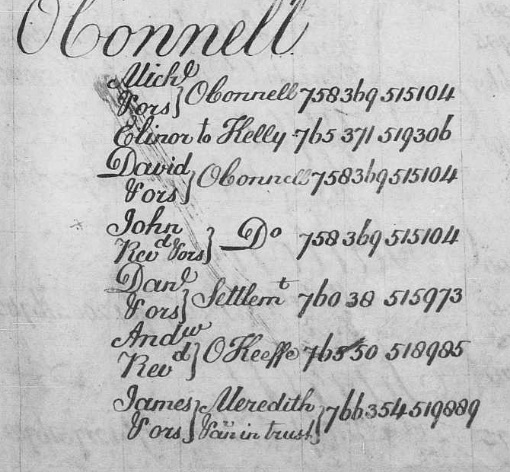 OConnell
Mich^l
&ors} OConnell 758 369 515104
Elinor to Kelly 765 371 519306
David
&ors} OConnell 758 369 515104
John
Rev^d &ors} Do 758 369 515104
Dan^l
&ors} Settlem^t 760 38 515973
And^w
Rev^d} OKeeffe 765 50 518985
James} Meredith
&ors} &an in trust} 766 354 519889